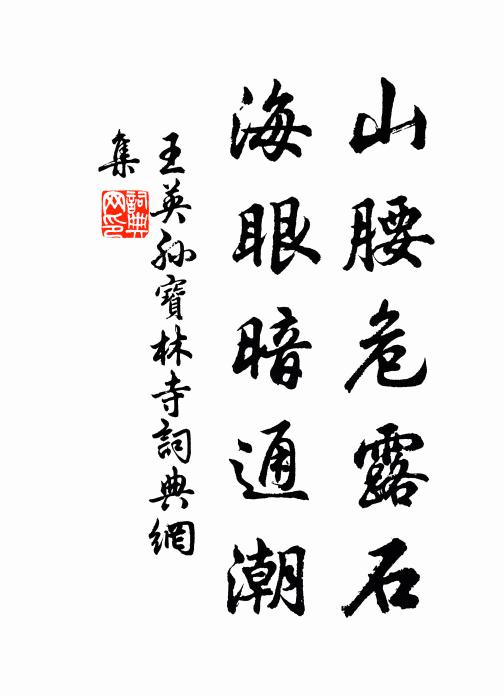 山腰危露石
海眼暗通潮
王英孙寶林寺詞典網
集
詞典
网印